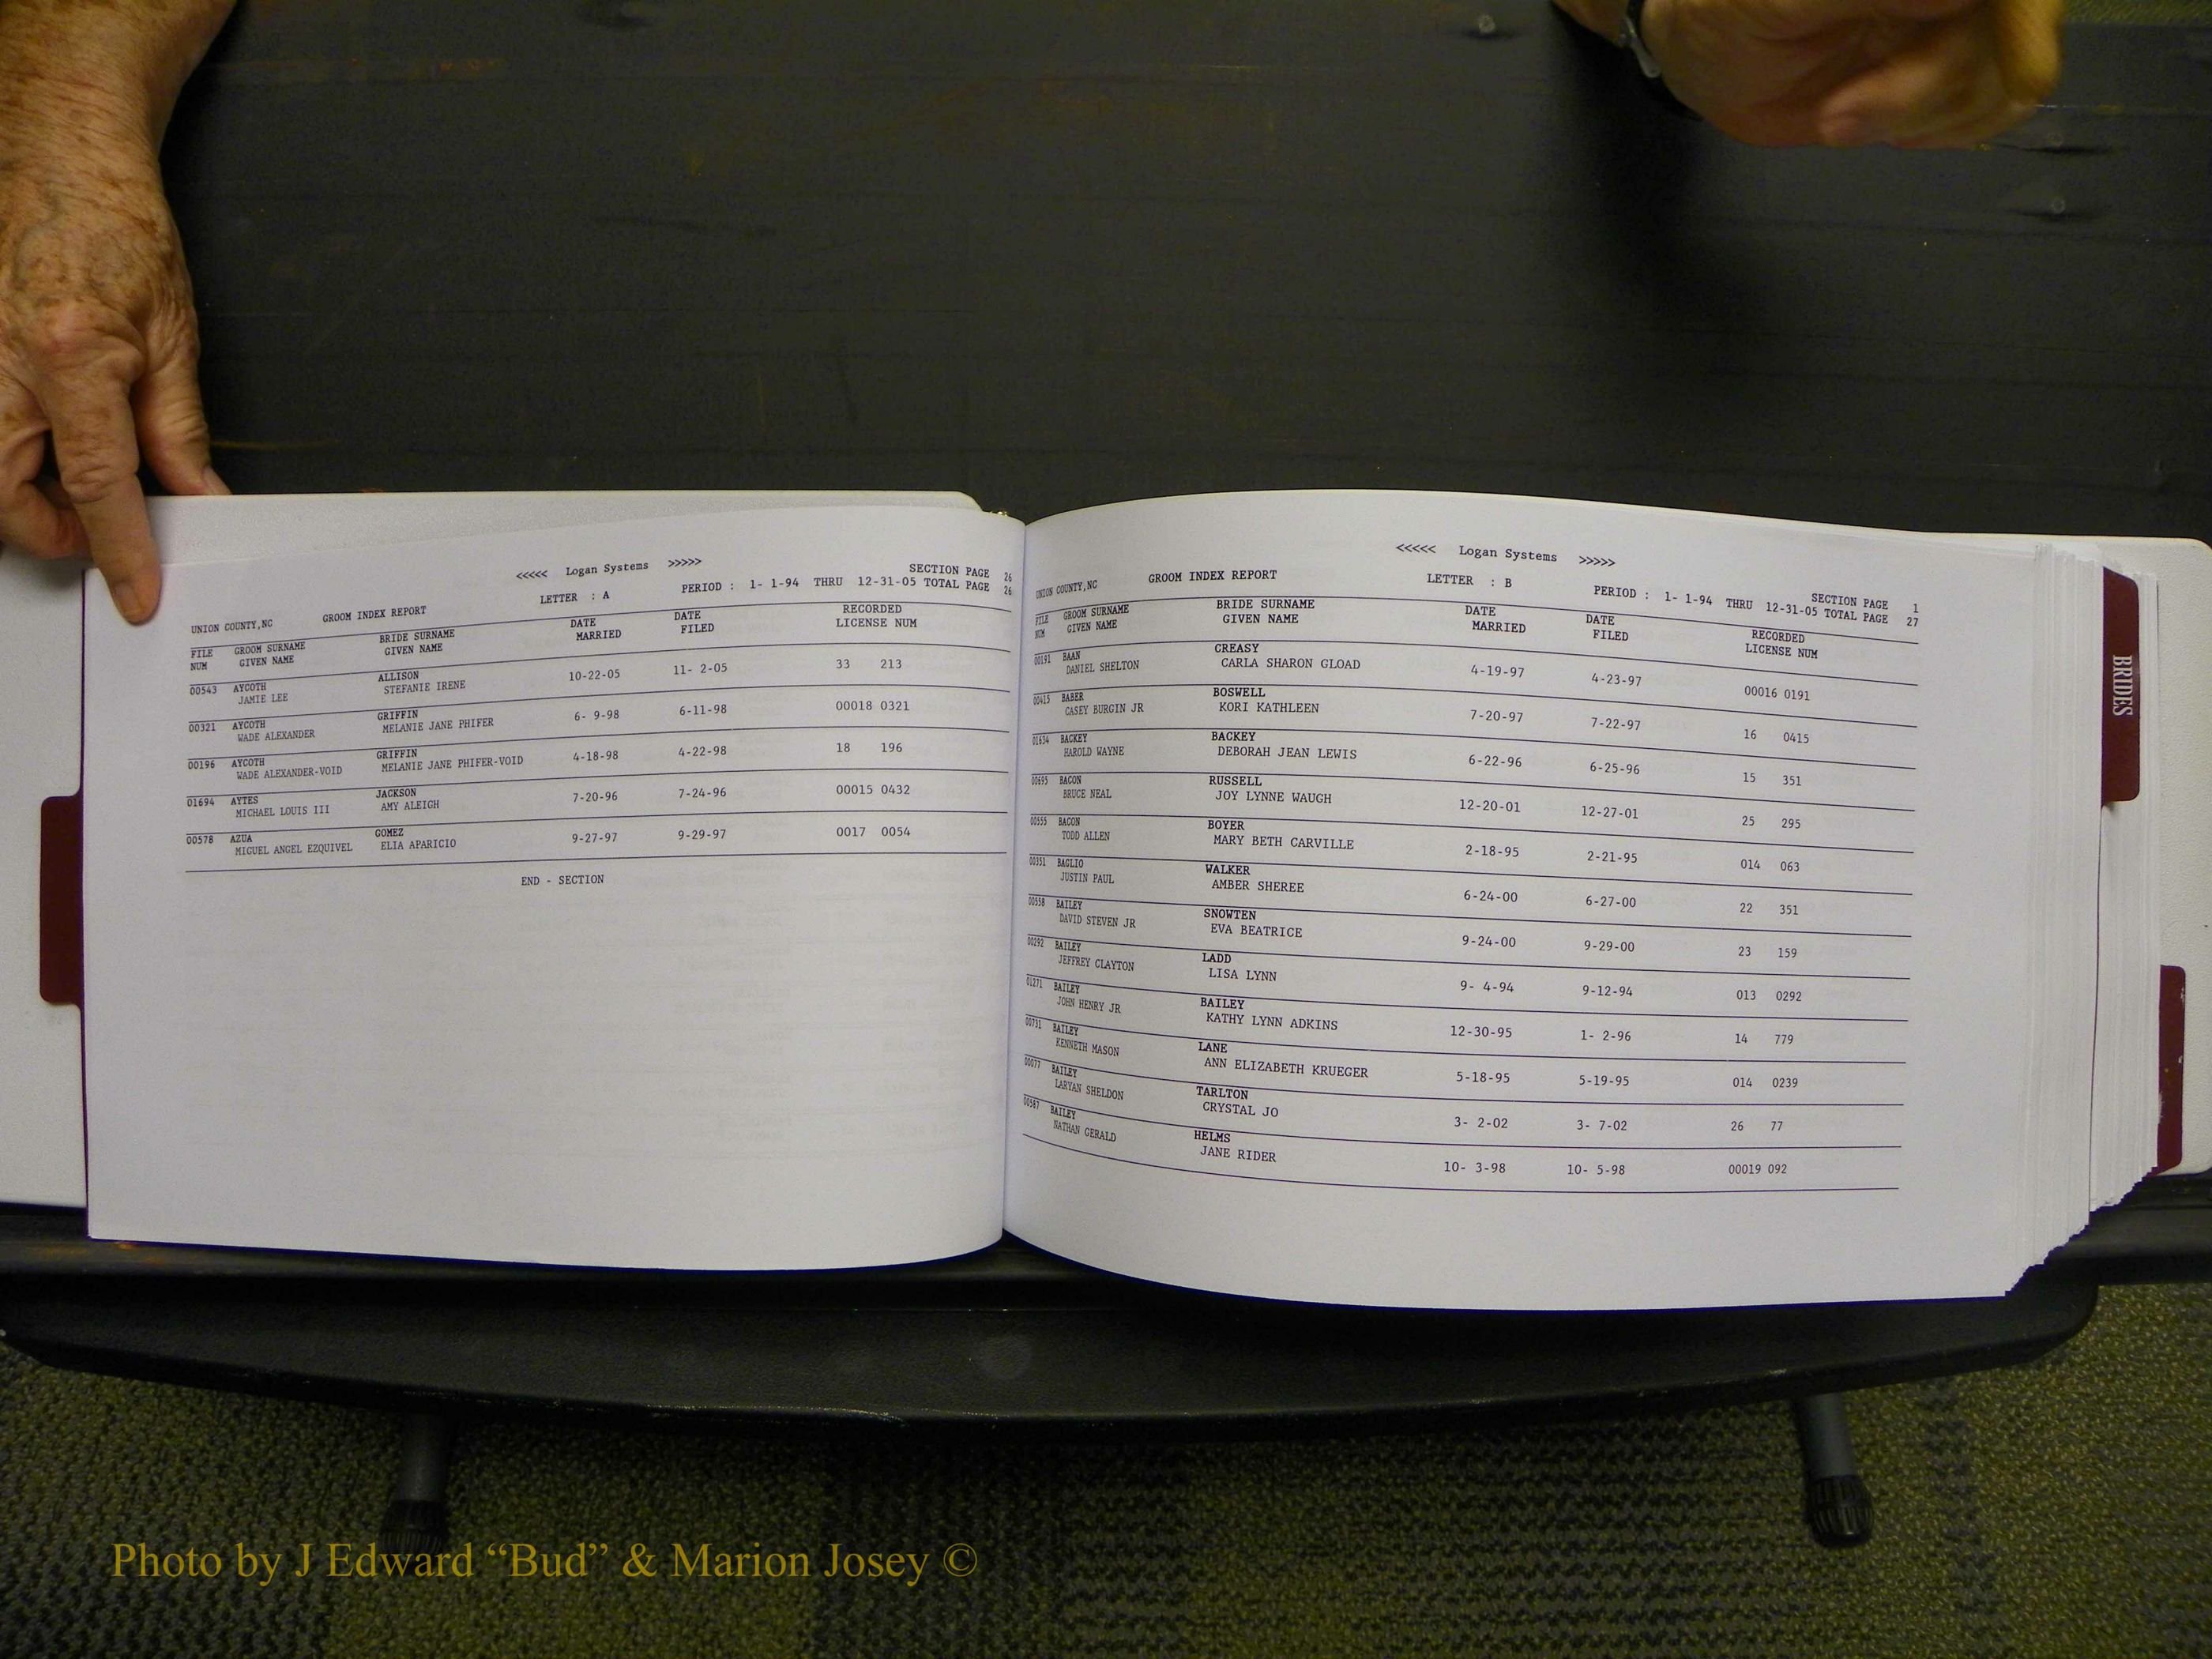 <<<<< Logan Systems >>>>>
UNION COUNTY,NC GROOM INDEX REPORT LETTER : A PERIOD : 1- 1-94 THRU 12-31-05 SECTION PAGE 26
TOTAL PAGE 26
FILE GROOM SURNAME BRIDE SURNAME DATE DATE RECORDED
NUM GIVEN NAME GIVEN NAME MARRIED FILED LICENSE NUM
00543 AYCOTH ALLISON 10-22-05 11- 2-05 33 213
JAMIE LEE STEFANIE IRENE
00321 AYCOTH GRIFFIN 6- 9-98 6-11-98 00018 0321
WADE ALEXANDER MELANIE JANE PHIFER
00196 AYCOTH GRIFFIN 4-18-98 4-22-98 18 196
WADE ALEXANDER-VOID MELANIE JANE PHIFER-VOID
01694 AYTES JACKSON 7-20-96 7-24-96 00015 0432
MICHAEL LOUIS III AMY ALEIGH
00578 AZUA GOMEZ 9-27-97 9-29-97 0017 0054
MIGUEL ANGEL EZQUIVEL ELIA APARICIO
END - SECTION
<<<<< Logan Systems >>>>>
UNION COUNTY,NC GROOM INDEX REPORT LETTER : B PERIOD : 1- 1-94 THRU 12-31-05 SECTION PAGE 1
TOTAL PAGE 27
FILE GROOM SURNAME BRIDE SURNAME DATE DATE RECORDED
NUM GIVEN NAME GIVEN NAME MARRIED FILED LICENSE NUM
00191 BAAN CREASY 4-19-97 4-23-97 00016 0191
DANIEL SHELTON CARLA SHARON GLOAD
00415 BABER BOSWELL 7-20-97 7-22-97 16 0415
CASEY BURGIN JR KORI KATHLEEN
01634 BACKEY BACKEY 6-22-96 6-25-96 15 351
HAROLD WAYNE DEBORAH JEAN LEWIS
00695 BACON RUSSELL 12-20-01 12-27-01 25 295
BRUCE NEAL JOY LYNNE WAUGH
00555 BACON BOYER 2-18-95 2-21-95 014 063
TODD ALLEN MARY BETH CARVILLE
00351 BAGLIO WALKER 6-24-00 6-27-00 22 351
JUSTIN PAUL AMBER SHEREE
00558 BAILEY SNOWTEN 9-24-00 9-29-00 23 159
DAVID STEVEN JR EVA BEATRICE
00292 BAILEY LADD 9- 4-94 9-12-94 013 0292
JEFFREY CLAYTON LISA LYNN
01271 BAILEY BAILEY 12-30-95 1- 2-96 14 779
JOHN HENRY JR KATHY LYNN ADKINS
00731 BAILEY LANE 5-18-95 5-19-95 014 0239
KENNETH MASON ANN ELIZABETH KRUEGER
00077 BAILEY TARLTON 3- 2-02 3- 7-02 26 77
LARYAN SHELDON CRYSTAL JO
00587 BAILEY HELMS 10- 3-98 10- 5-98 00019 092
NATHAN GERALD JANE RIDER
BRIDES
Photo by J Edward “Bud” & Marion Josey ©